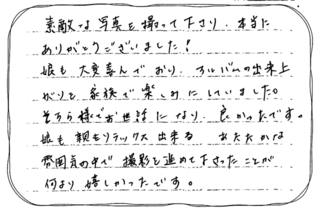 素敵な写真を撮って下さり、本当に
ありがとうございました!
娘も大変喜んでおり、アルバムの出来上
がりを家族で楽しみにしていました。
そちら様でお世話になり、良かったです。
娘も親もリラックス出来る あたたかな
雰囲気の中で撮影を進めて下さったことが
何より嬉しかったです。